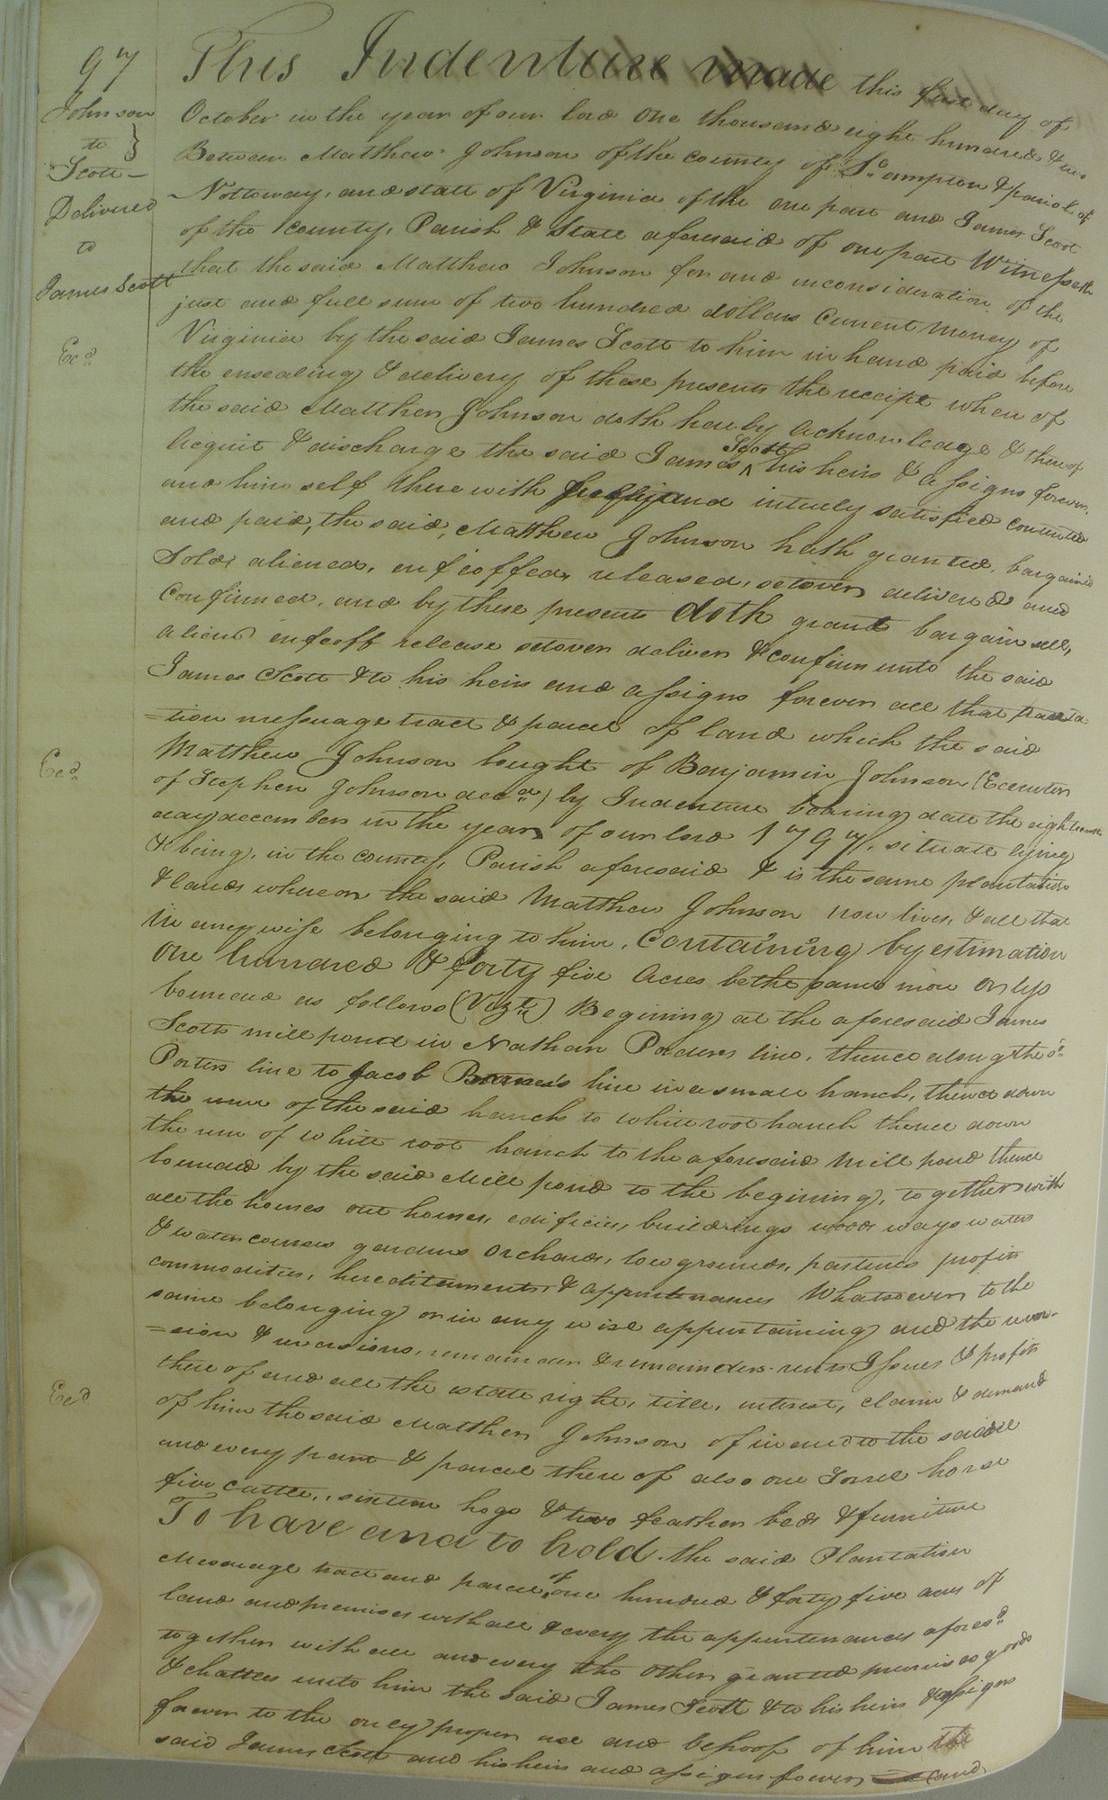 97
Johnson
to }
Scott –
Delivered
to
James Scott
Exd
This Indenture made this first day of
October in the year of our lord One thousand eight hundred & two
Between Matthew Johnson of the county of So.ampton & parish of
Nottoway, and state of Virginia of the one part and James Scott
of the County, Parish & State aforesaid of one part Witnesseth
that the said Matthew Johnson for and inconsideration of the
just and full sum of two hundred dollars Current Money of
Virginia by the said James Scott to him in hand paid before
the ensealing & delivery of these presents the receipt where of
the said Matthew Johnson doth hereby acknowledge & thereof
Acquit & discharge the said James Scott his heirs & assigns forever
and him self there with fully and intirely satisfied contented
and paid, the said, Matthew Johnson hath granted, bargained
Sold, aliened, enfeoffed, released, setover, delivered and
Confirmed, and by these presents doth grant bargain sell,
aliend enfeoff release setover deliver & confirm unto the said
James Scott & to his heirs and assigns forever all that planta
=tion messuage tract & parcel of land which the said
Exd
Matthew Johnson bought of Benjamin Johnson (Executor
of Stephen Johnson decd) by Indenture bearing date the eighteenth
day december in the year of our lord 1797, situate lying
& being, in the county, Parish aforesaid & is the same plantation
& lands whereon the said Matthew Johnson now lives, & all that
in any wise belonging to him, Containing by estimation
One hundred & forty five Acres be the same more or less
bounded as follows (Vizt) Begining at the aforesaid James
Scotts mill pond in Nathan Porters line, thence along the sd
Porters line to Jacob Barnes's line in a small branch, thence down
the run of the said branch to white root branch thence down
the run of white root branch to the aforesaid Mill pond thence
bounded by the said Mill pond to the begining, together with
all the houses out houses, edificies, buildings woods ways waters
& water courses gardens Orchards, low grounds, pastures profits
commodities, hereditaments & appurtenances Whatsoever, to the
same belonging or in any wise appurtaining and the rever-
=sion & reversions, remainder & remainders rents Issues & profits
Exd
there of and all the estate right, title, interest, claim & demand
of him the said Matthew Johnson of in and to the said
and every part & parcel there of also one Sorrel horse
five cattle, sixteen hogs & two feather beds & furniture
To have and to hold the said Plantation
Messuage tract and parcel of one hundred & forty five acres of
land and premises with all & every the appurtenances aforesd
together with all and every the other granted premises goods
& chattles unto him the said James Scott & to his heirs & assigns
forever to the only proper use and behoof of him the
said James Scott and his heirs and assigns forever and